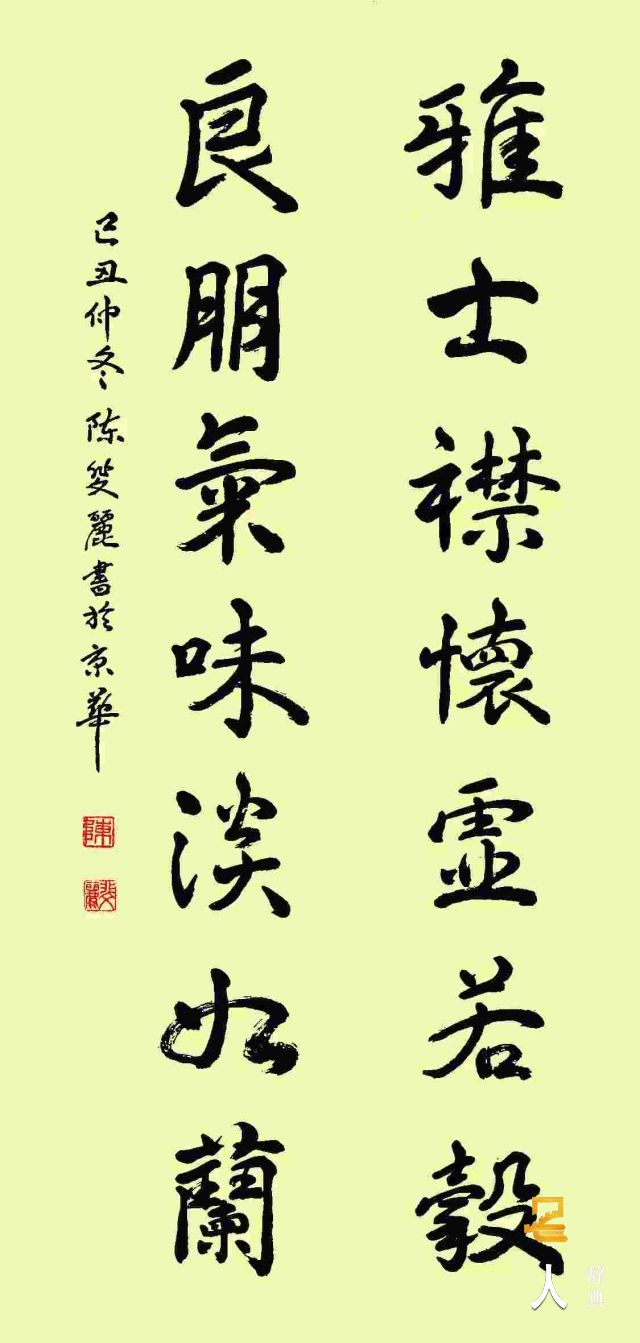 雅士襟懷虛若穀
良朋氣味淡如蘭
己丑仲冬陈斐麗書於京華
陳
斐麗
人